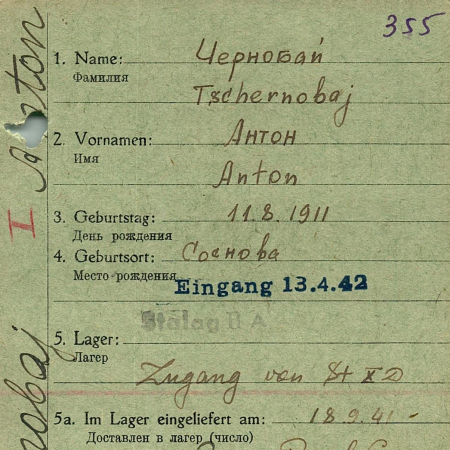 355
1. Name: Чернобай
Фамилия
Tschernobaj
2. Vornamen: Антон
Имя
Anton
3. Geburtstag: 11.8.1911
День рождения
4. Geburtsort: Соснова
Место рождения
Eingang 13.4.42
Stalag
5. Lager:
Лагер
Zugang von St X D
5a. Im Lager eingeliefert am: 18.9.41.-
Доставлен в лагер (число)
I